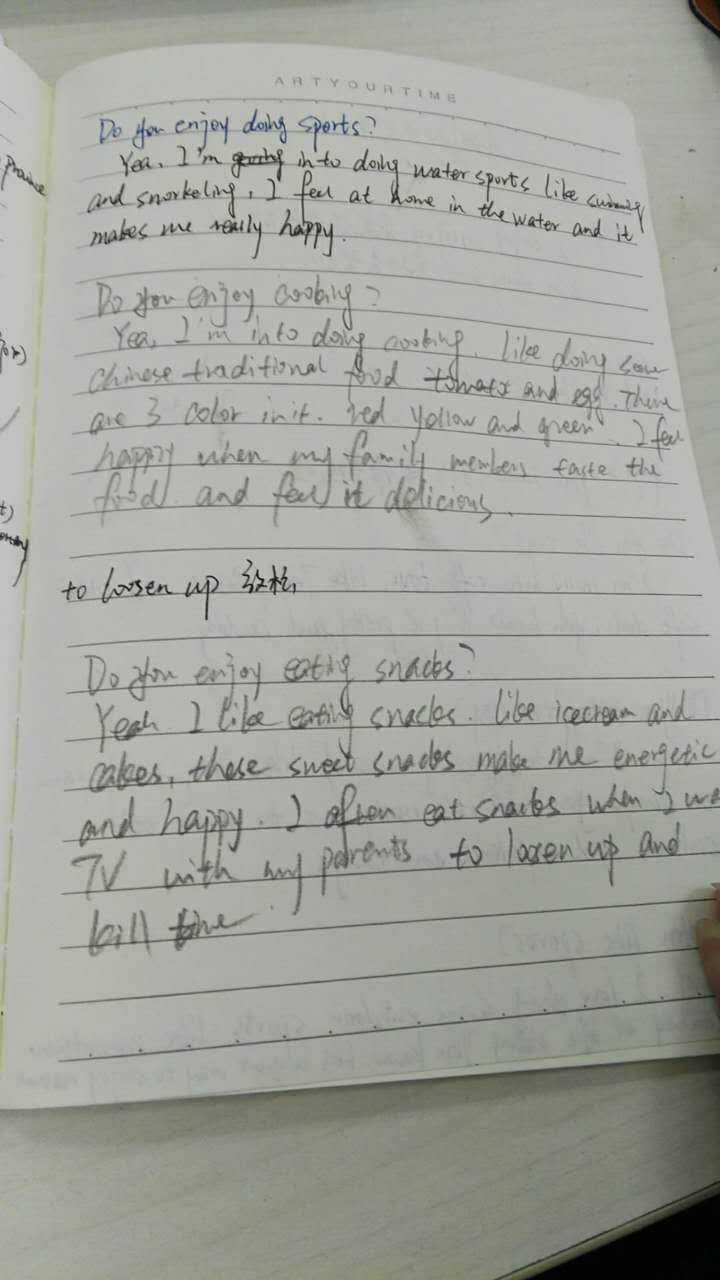 ARTYOURTIME
Do you enjoy doing sports?
Yea, I'm going into doing water sports like swimming
and snorkeling, I feel at home in the water and it
makes me really happy.
Do you enjoy cooking?
Yea, I'm into doing cooking. like doing some
chinese traditional food tomato and egg. There
are 3 color in it. red yollow and green. I feel
happy when my family members taste the
food and feel it delicious.
to loosen up 放松
Do you enjoy eating snacks?
Yeah I like eating snacks. like icecream and
cakes, these sweet snacks make me energetic
and happy. I often eat snacks when I
TV with my parents to loosen up and
kill time.